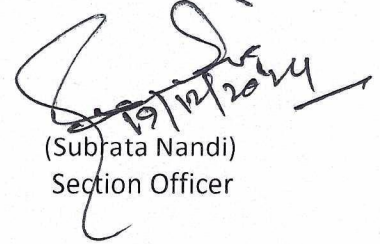 19/12/2024
(Subrata Nandi)
Section Officer